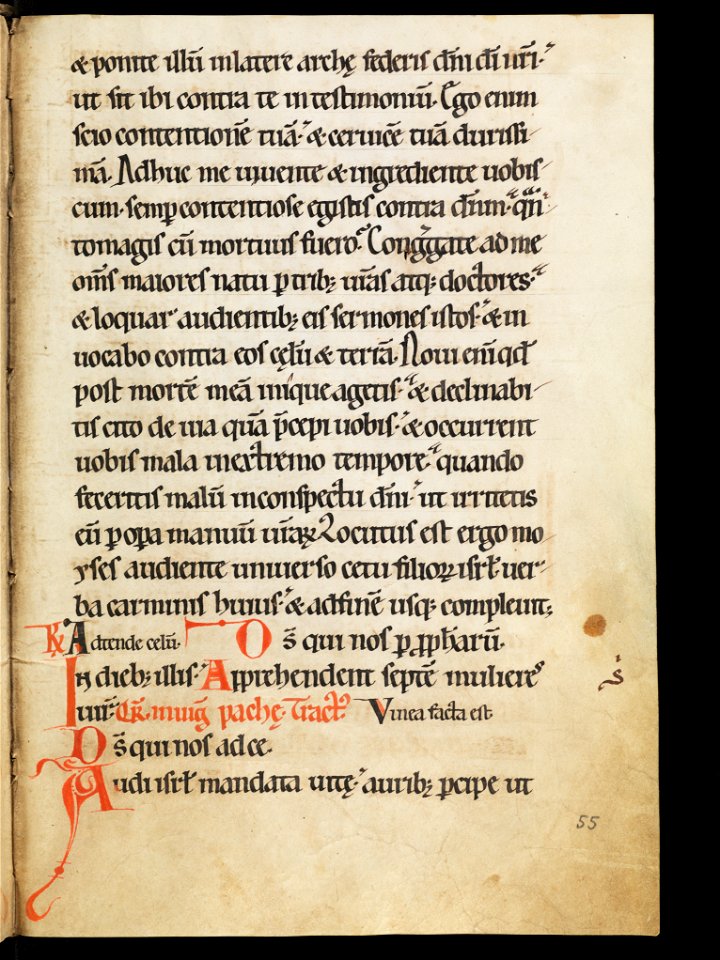 & ponite illū inlatere archę federis dn̄i dī urī.
ut sit ibi contra te intestimoniū. Ego enim
scio contentionē tuā. & ceruicē tuā durissi-
mā. Adhuc me uiuente & ingrediente uobis-
cum. semp̱ contentiose egistis contra dn̄m. qn̄-
tomagis cū mortuus fuero. Congg̱ate ad me
om̄s maiores natu p̱ trib; ur̄as atq; doctores.
& loquar audientib; eis sermones istos. & in
uocabo contra eos cęlū & terrā. Noui eni̅ qđ
post mortē meā inique agetis. & declinabi-
tis cito de uia quā p̄cepi uobis. & occurrent
uobis mala inextremo tempore. quando
feceritis malū inconspectu dn̄i. ut irritetis
eū p̱ opa manuū ur̄aꝝ Locutus est ergo mo-
yses audiente uniuerso cetu filioꝝ isrł uer-
ba carminis huius. & adfinē usq; compleuit;
Adtende celū. Os̄ qui nos p̱ p̱ph̄arū.
In dieb; illis. Apprehendent septē muliereˢ
uir̄. Gr̄. inuig̱ pachę. Tract᷒ Vinea facta est.
Ds̄ qui nos ad ce.
Audi isrł mandata uitę. aurib; p̱cipe ut
s̄
55